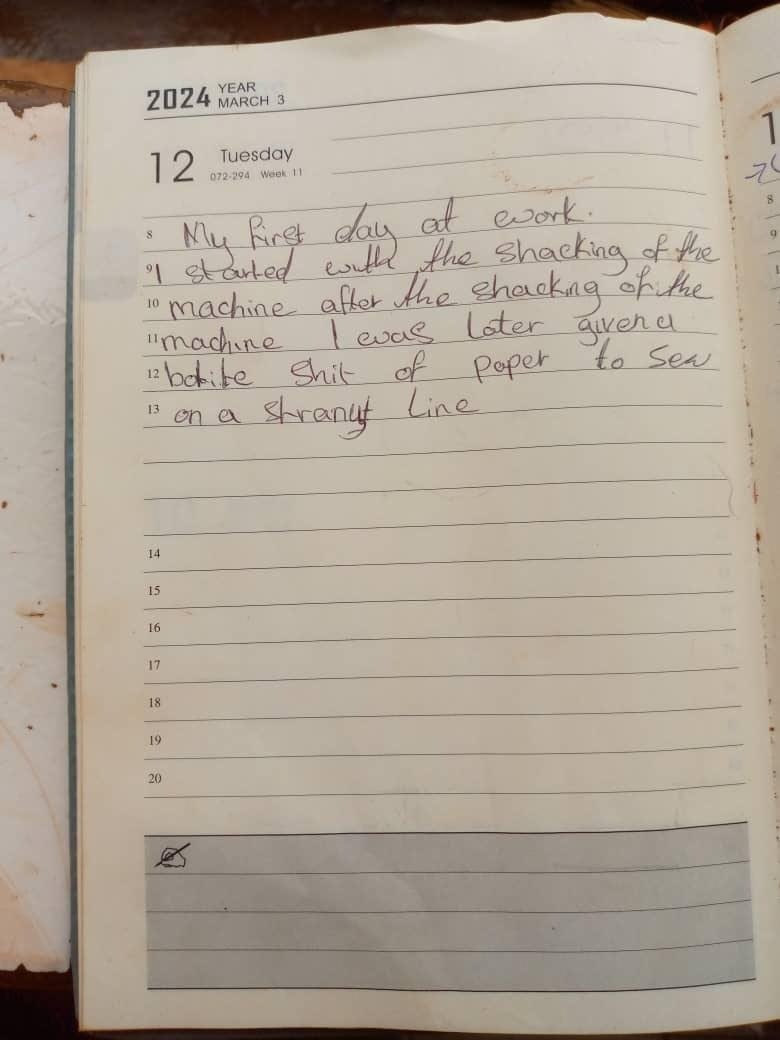 2024 YEAR
MARCH 3
12 Tuesday
072-294 Week 11
8 My first day at work.
9 I started with the shacking of the
10 machine after the shacking of the
11 machine I was later given a
12 shit of paper to sew
13 on a line
14
15
16
17
18
19
20
8
9